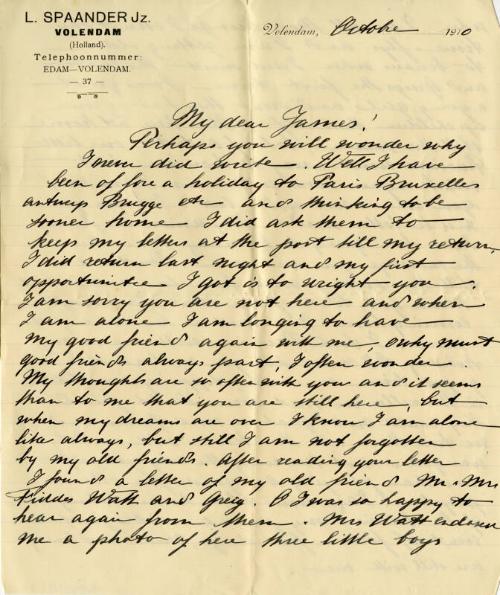 L. SPAANDER Jz.
VOLENDAM
(Holland).
Telephoonnummer:
EDAM—VOLENDAM.
— 37 —
Volendam, Octobre 1910
My dear James!
Perhaps you will wonder why
I never did write. Well I have
been of for a holiday to Paris Bruxelles
antwerp Brugge etc and thinking to be
sooner home I did ask them to
keep my letters at the post till my return,
I did return last night and my first
opportunitee I got is to wright you.
I am sorry you are not here and when
I am alone I am longing to have
my good friend again with me, o why must
good friends always part, I often wonder.
My thoughts are so often with you and it seems
than to me that you are still here, but
when my dreams are over I know I am alone
like always, but still I am not forgotten
by my old friends. After reading your letter
I found a letter of my old friend Mr. Mrs
Fiddes Watt and Greig. O I was so happy to
hear again from them. Mrs Watt
me a photo of here three little boys